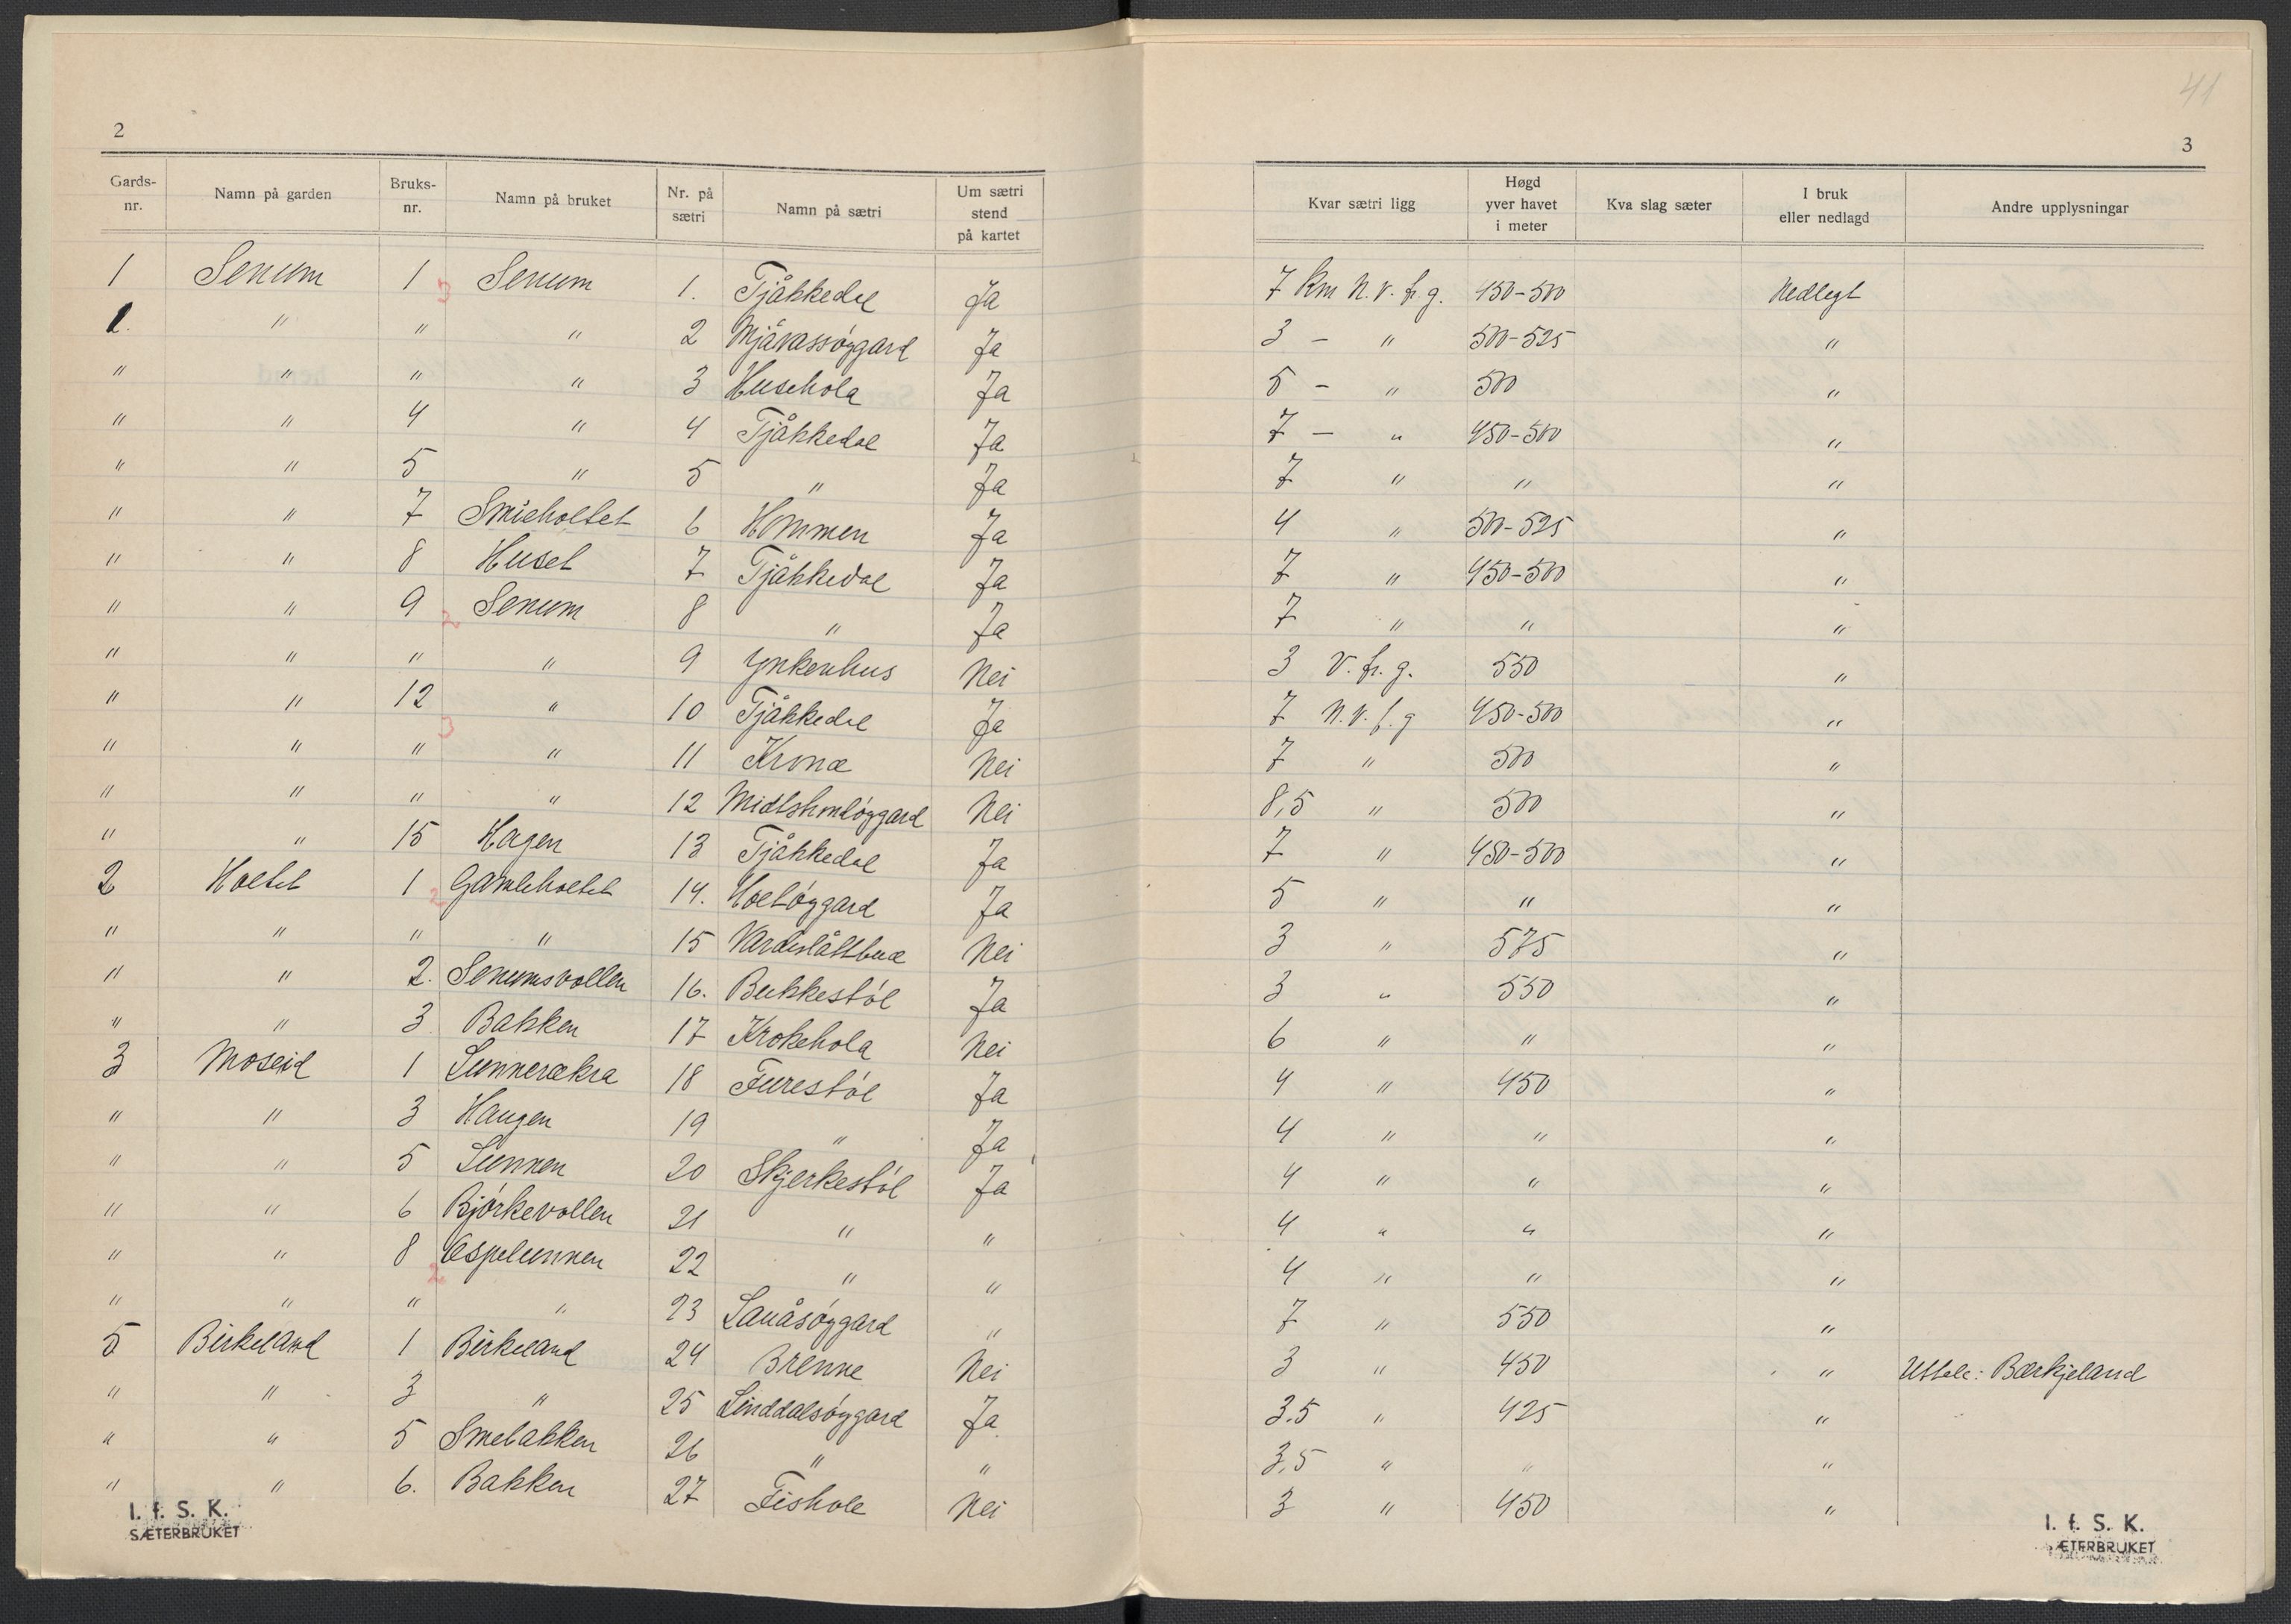 41
2
3
Gards-nr. Namn på garden Bruks-nr. Namn på bruket Nr. på sætri Namn på sætri Um sætri stend på kartet Kvar sætri ligg Høgd yver havet i meter Kva slag sæter I bruk eller nedlagd Andre upplysningar
1 Senum 1 3 Senum 1. Tjåkkedal Ja 7 km N.V. fr. g. 450-500 Nedlegt
1. " " " 2 Mjåvassøygard Ja 3 - " 500-525 "
" " " " 3 Husehola Ja 5 - " 500 "
" " 4 " 4 Tjåkkedal Ja 7 - " 450-500 "
" " 5 " 5 " Ja 7 " " "
" " 7 Smieholtet 6 Hommen Ja 4 " 500-525 "
" " 8 Huset 7 Tjåkkedal Ja 7 " 450-500 "
" " 9 2 Senum 8 " Ja 7 " " "
" " " " 9 Ynkenhus Nei 3 V. fr. g. 550 "
" " 12 3 " 10 Tjåkkedal Ja 7 N.V. f. g 450-500 "
" " " " 11 Kronæ Nei 7 " 500 "
" " " " 12 Nei 8,5 " 500 "
" " 15 Hagen 13 Tjåkkedal Ja 7 " 450-500 "
2 Holtet 1 2 Gamleholtet 14. Holtøygard Ja 5 " " "
" " " " 15 Vardeslåttbuæ Nei 3 " 575 "
" " 2. Senumsvollen 16. Bukkestøl Ja 3 " 550 "
" " 3 Bakken 17 Krokehola Nei 6 " " "
3 Moseid 1 Lunnerækra 18 Furestøl Ja 4 " 450 "
" " 3 Haugen 19 " Ja 4 " " "
" " 5 Lunnen 20 Skjerkestøl Ja 4 " " "
" " 6 Bjørkevollen 21 " " 4 " " "
" " 8 2 Ospelunnen 22 " " 4 " " "
" " " " 23 Lauåsøygard " 7 " 550 "
5 Birkeland 1 Birkeland 24 Brenne Nei 3 " 450 " Uttale: Bærkjeland
" " 3 " 25 Linddalsøygard Ja 3.5 " 425 "
" " 5 Smebakken 26 " " 3,5 " " "
" " 6. Bakken 27 Fishole Nei 3 " 450 "
I. f. S. K.
SÆTERBRUKET
I. f. S. K.
ÆTERBRUKET